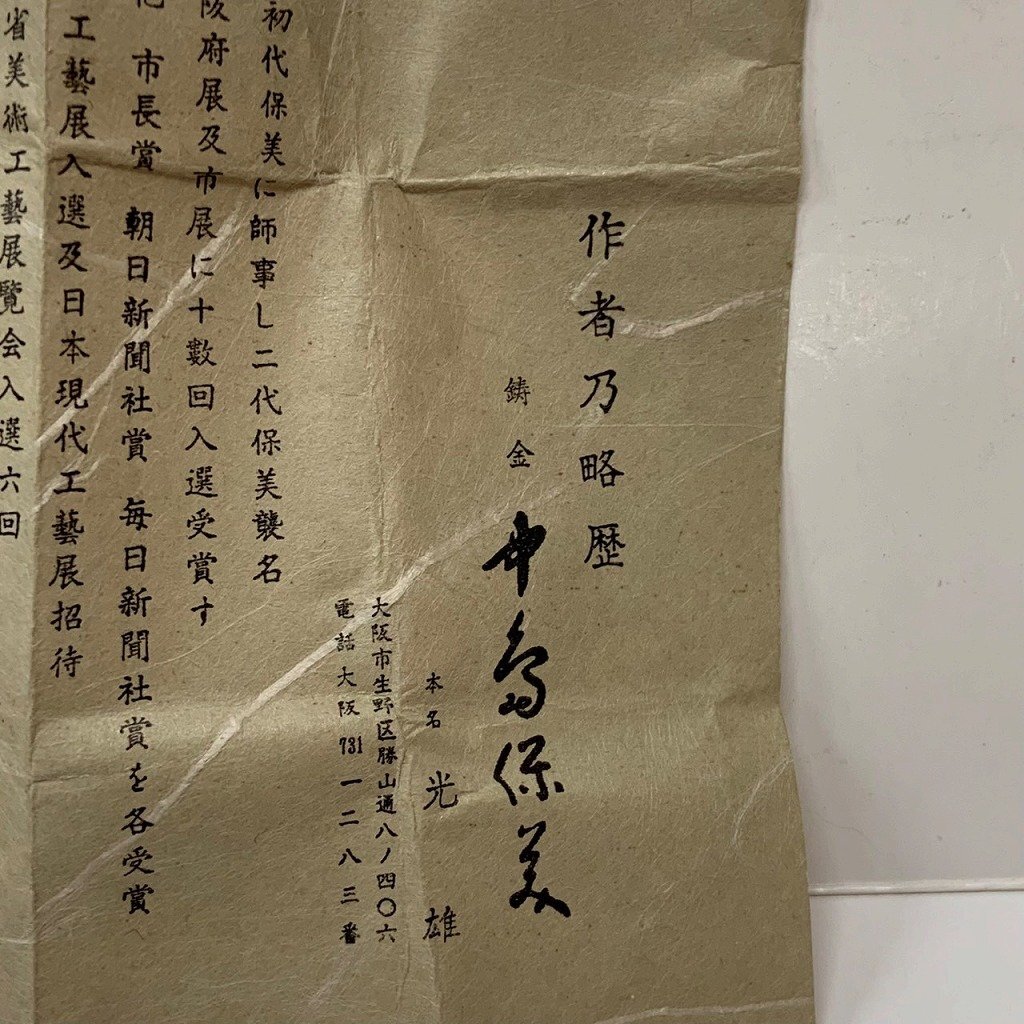 作者乃略歴
鋳金 中島保美
本名 光雄
大阪市生野区勝山通八ノ四〇六
電話大阪731一二八三番
初代保美に師事し二代保美襲名
阪府展及市展に十数回入選受賞す
市長賞 朝日新聞社賞 毎日新聞社賞を各受賞
工藝展入選及日本現代工藝展招待
省美術工藝展覧会入選六回